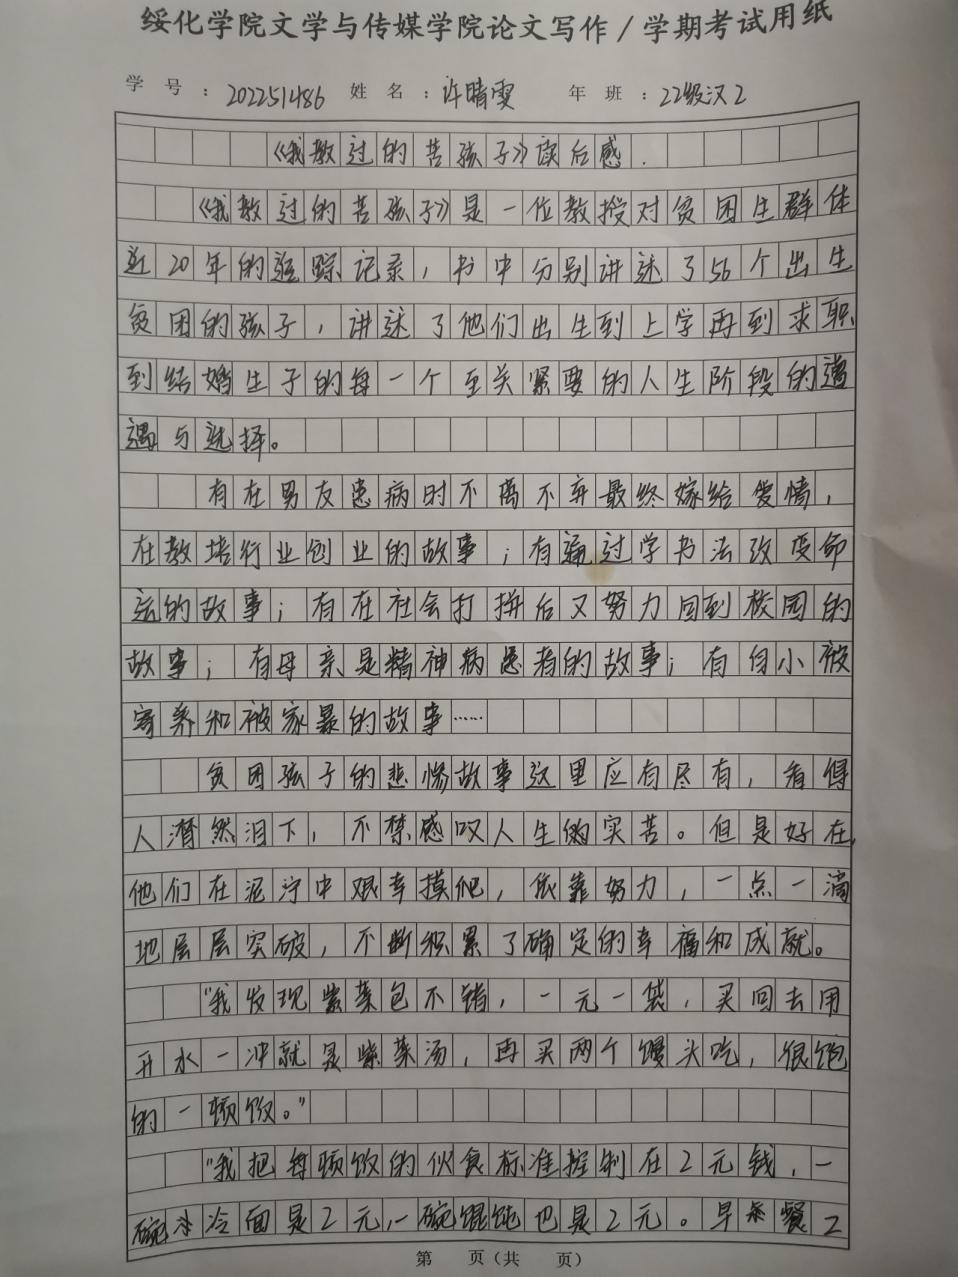 绥化学院文学与传媒学院论文写作/学期考试用纸
学号：202251486 姓名：许晴雯 年班：22级汉2
《我教过的苦孩子》读后感.
《我教过的苦孩子》是一位教授对贫困生群体
近20年的追踪记录，书中分别讲述了56个出生
贫困的孩子，讲述了他们出生到上学再到求职
到结婚生子的每一个至关紧要的人生阶段的遭
遇与选择。
有在男友患病时不离不弃最终嫁给爱情，
在教培行业创业的故事；有通过学书法改变命
运的故事；有在社会打拼后又努力回到校园的
故事；有母亲是精神病患者的故事；有自小被
寄养和被家暴的故事……
贫困孩子的悲惨故事这里应有尽有，看得
人潸然泪下，不禁感叹人生的实苦。但是好在，
他们在泥泞中艰辛摸爬，依靠努力，一点一滴
地层层突破，不断积累了确定的幸福和成就。
“我发现紫菜包不错，一元一袋，买回去用
开水一冲就是紫菜汤，再买两个馒头吃，很饱
的一顿饭。”
“我把每顿饭的伙食标准控制在2元钱，一
碗冷面是2元，一碗馄饨也是2元。早餐2
第 页（共 页）